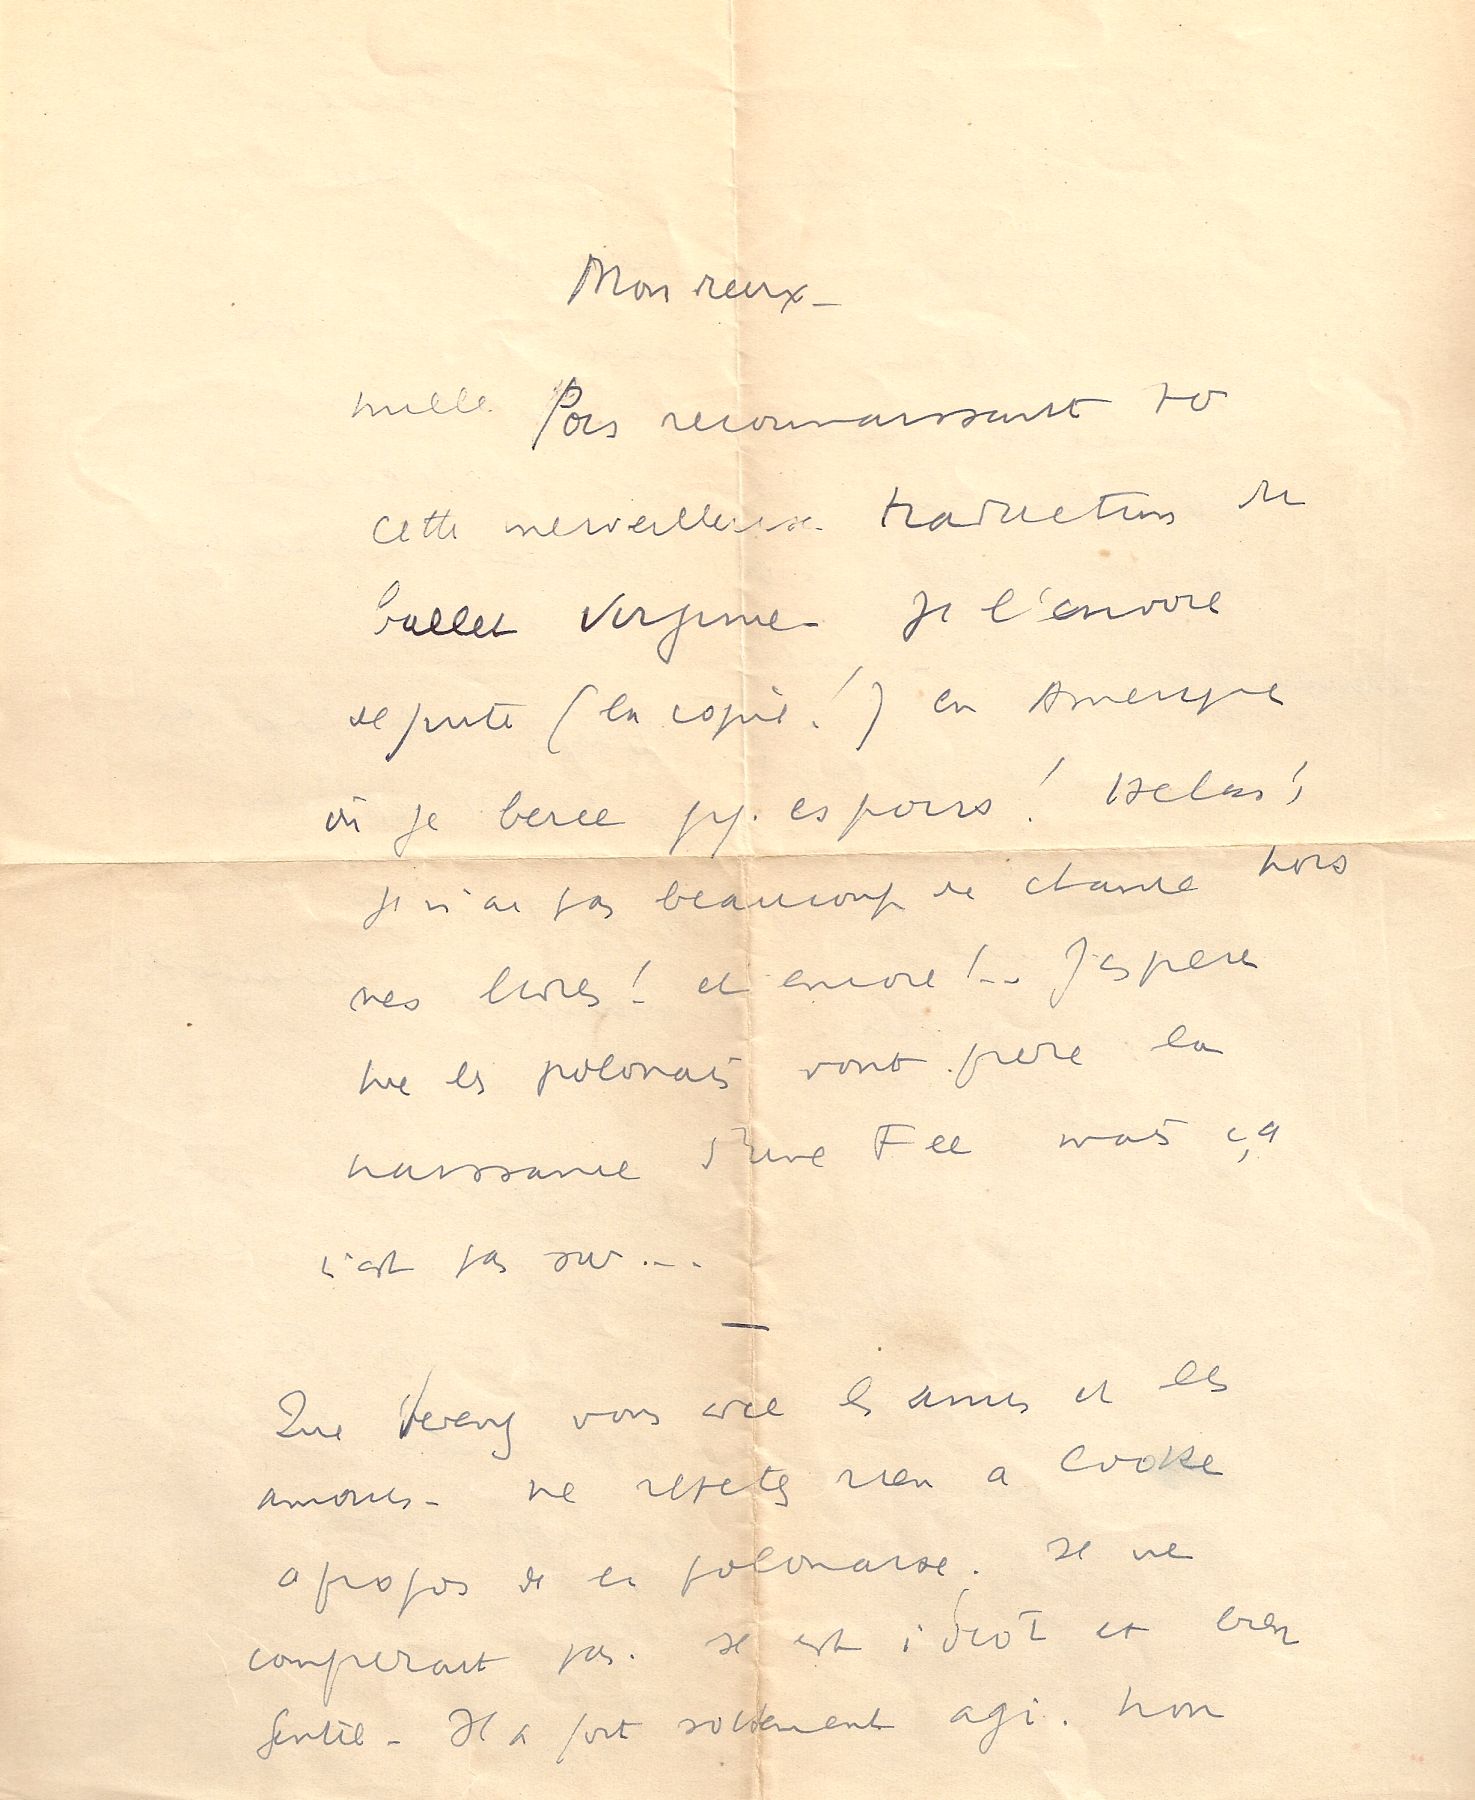 Mon vieux -
mille fois reconnaissant
cette merveilleuse traduction du
ballet Virginie - Je l'envoie
de suite (la copie!) en Amerique
où je berce qq. espoirs! Helas!
Je n'ai pas beaucoup de chance hors
mes livres! et encore!.. J'espere
que les polonais vont
naissance d'une Fee mais ça
n'est pas sur...
Que vous les amis et les
amours - ne repetez rien a Cooke
a propos de la polonaise. Il ne
comprenait pas. Il est idiot et bien
gentil - Il a fort sottement agi. Non